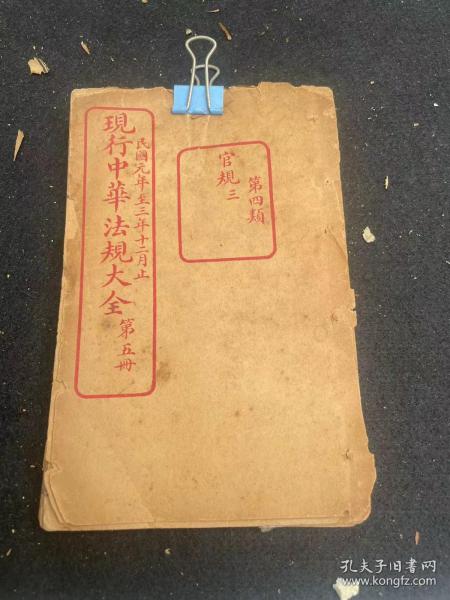 第四類
官規三
民國元年至三年十二月止
現行中華法規大全
第五冊
孔夫子旧书网
www.kongfz.com